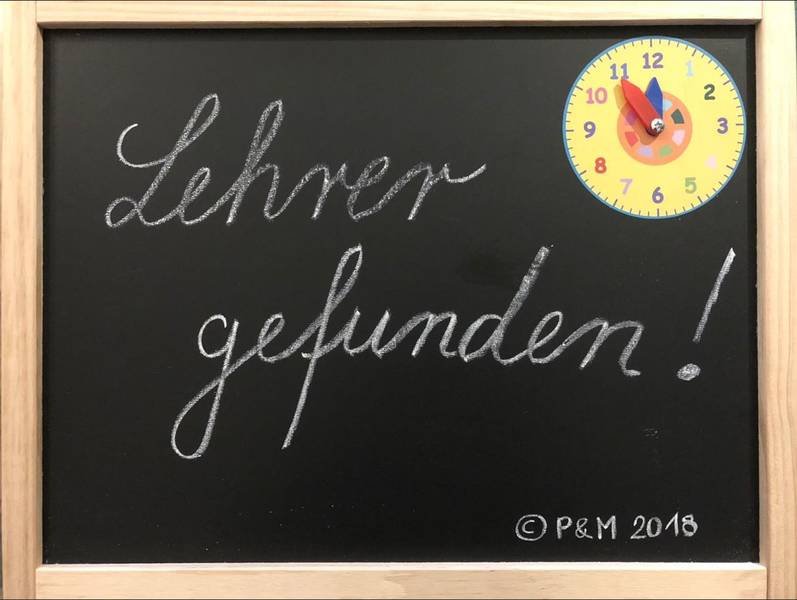 Lehrer
gefunden!
12
1
2
3
4
5
6
7
8
9
10
11
© P&M 2018